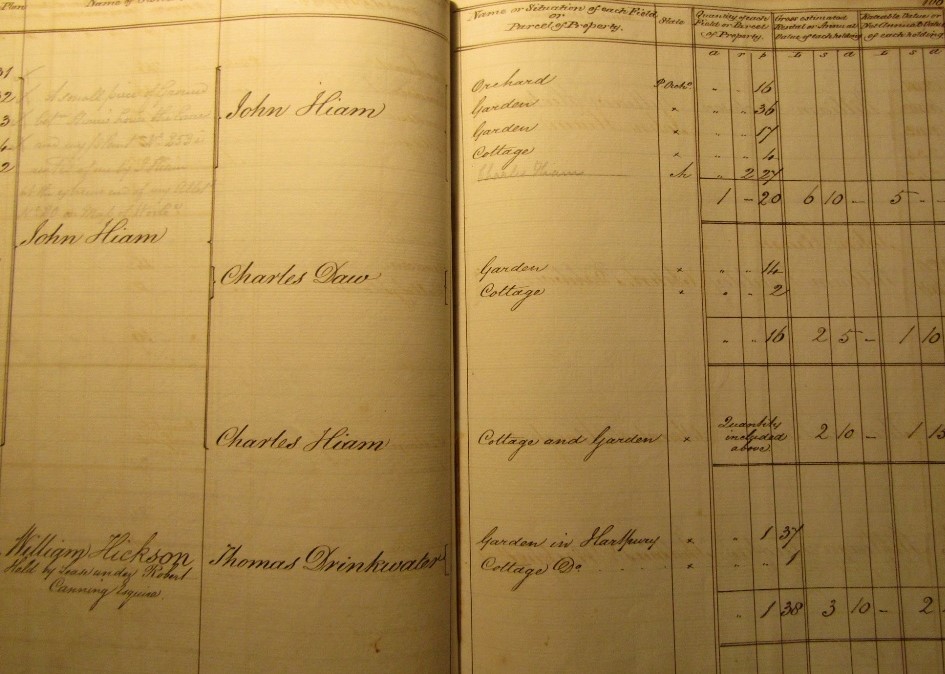 Plan
Name of
Name or Situation of each Field or Parcel of Property.
State
Quantity of each Field or Parcel of Property.
Gross estimated Rental or Annual Value of each holding
Rateable Value or Net Annual Value of each holding
a r p £ s d £ s d
John Hiam
Orchard P. Orchd. " " 16
Garden × " " 36
Garden × " " 17
Cottage × " " 4
Charles Hiam " 2 27
1 – 20 6 10 – 5 – –
A small piece of Ground
John Hiam
Charles Daw
Garden × " " 14
Cottage × " " 2
" " 16 2 5 – 1 10
Charles Hiam
Cottage and Garden × Quantity included above 2 10 – 1 15
William Hickson
Held by Lease under Robert
Canning Esquire.
Thomas Drinkwater
Garden in Hartpury × " 1 37
Cottage Do. × " 1
" 1 38 3 10 – 2